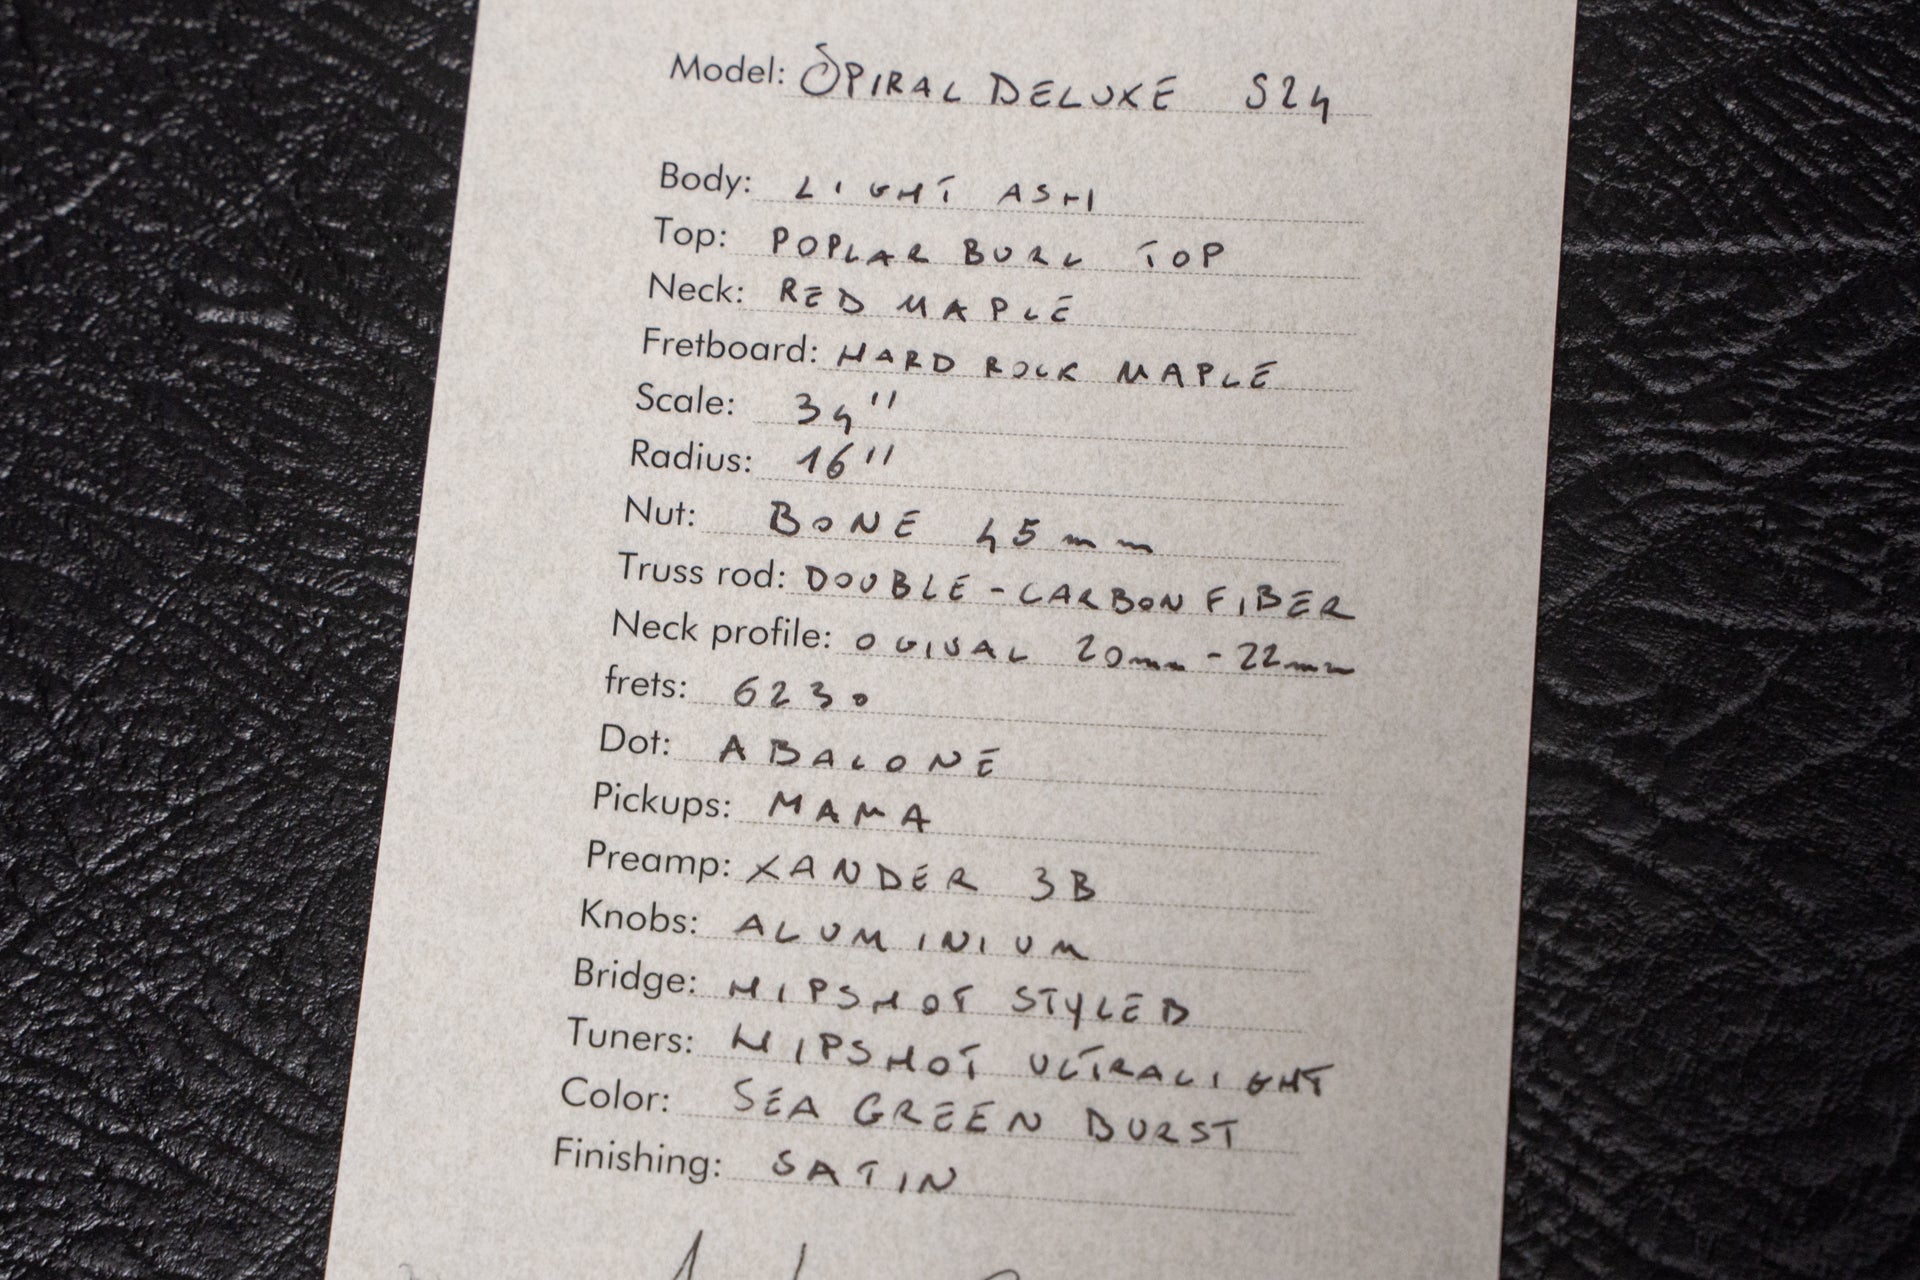 Model: SPIRAL DELUXE S24
Body: LIGHT ASH
Top: POPLAR BURL TOP
Neck: RED MAPLE
Fretboard: HARD ROCK MAPLE
Scale: 34"
Radius: 16"
Nut: BONE 45mm
Truss rod: DOUBLE-CARBON FIBER
Neck profile: OGIVAL 20mm-22mm
frets: 6230
Dot: ABALONE
Pickups: MAMA
Preamp: XANDER 3B
Knobs: ALUMINIUM
Bridge: HIPSHOT STYLED
Tuners: HIPSHOT ULTRALIGHT
Color: SEA GREEN BURST
Finishing: SATIN